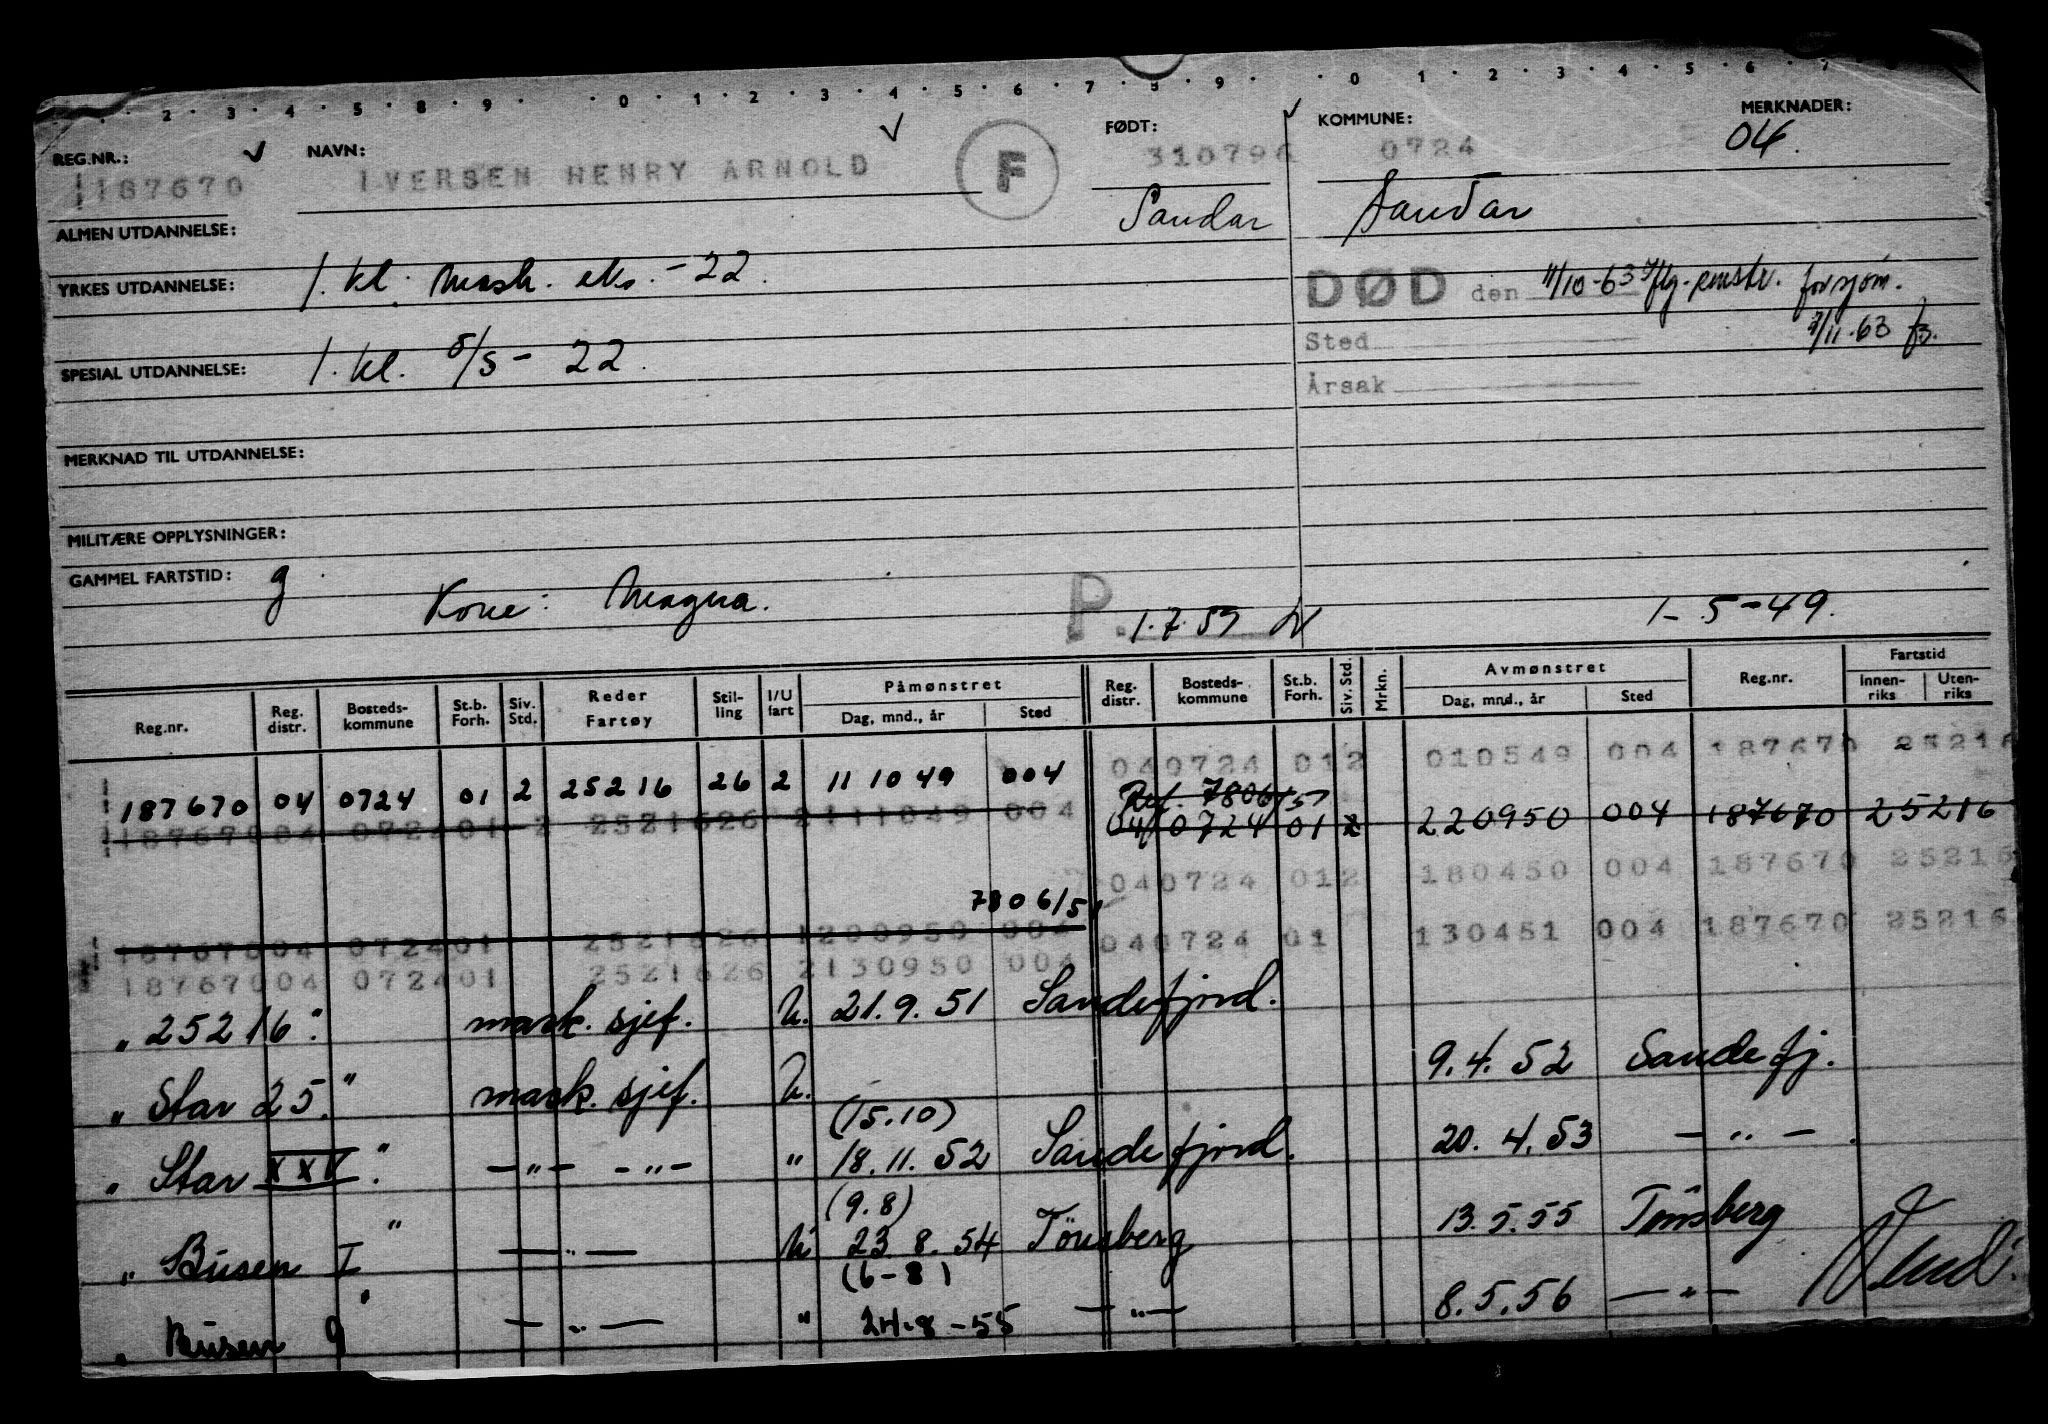 2 · 3 · 4 · 5 · 8 · 9 · · 0 · 1 · 2 · 3 · 4 · 5 · 6 · 7 · 8 · 9 · · 0 · 1 · 2 · 3 · 4 · 5 · 6 · 7
REG.NR.: NAVN: FØDT: KOMMUNE: MERKNADER:
187670 IVERSEN HENRY ARNOLD F 310796 0724 04.
Sandar Sandar
ALMEN UTDANNELSE:
YRKES UTDANNELSE: 1. kl. mask. eks. - 22.
DØD den 11/10-63 flg. forsjøm.
Sted 7/11.63
SPESIAL UTDANNELSE: 1. kl. S/S - 22.
Årsak
MERKNAD TIL UTDANNELSE:
MILITÆRE OPPLYSNINGER:
GAMMEL FARTSTID: g
Kone: Magna. P. 1.7.59 1-5-49.
Reg.nr. Reg. distr. Bosteds-kommune St.b. Forh. Siv. Std. Reder Fartøy Stil-ling I/U fart Påmønstret Dag, mnd., år Sted Reg. distr. Bosteds-kommune St.b. Forh. Siv. Std. Mrkn. Avmønstret Dag, mnd., år Sted Reg.nr. Fartstid Innen-riks Uten-riks
040724 012 010549 004 187670 25216
187670 04 0724 01 2 25216 26 2 11 10 49 004 Ref. 7806/51
18767004 072401 2 2521626 2111049 004 04 0724 01 2 220950 004 187670 25216
040724 012 180450 004 187670 25216
7806/51
18767004 072401 2521626 1200950 004 040724 01 130451 004 187670 25216
18767004 072401 2521626 2130950 004
" 25216." mask. sjef. U. 21.9.51 Sandefjord.
9.4.52 Sandefj.
" Star 25." mask. sjef. U.
(15.10)
" Star XXV." -"- -"- " 18.11.52 Sandefjord. 20.4.53 -"-.
(9.8)
" Busen I" -"- U 23.8.54 Tönsberg 13.5.55 Tönsberg
(6-8)
" Busen 9" -"- " 24-8-55 -"- 8.5.56 -"-